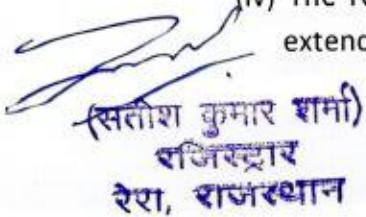 (iv) The
extend
(सतीश कुमार शर्मा)
रजिस्ट्रार
रेरा, राजस्थान